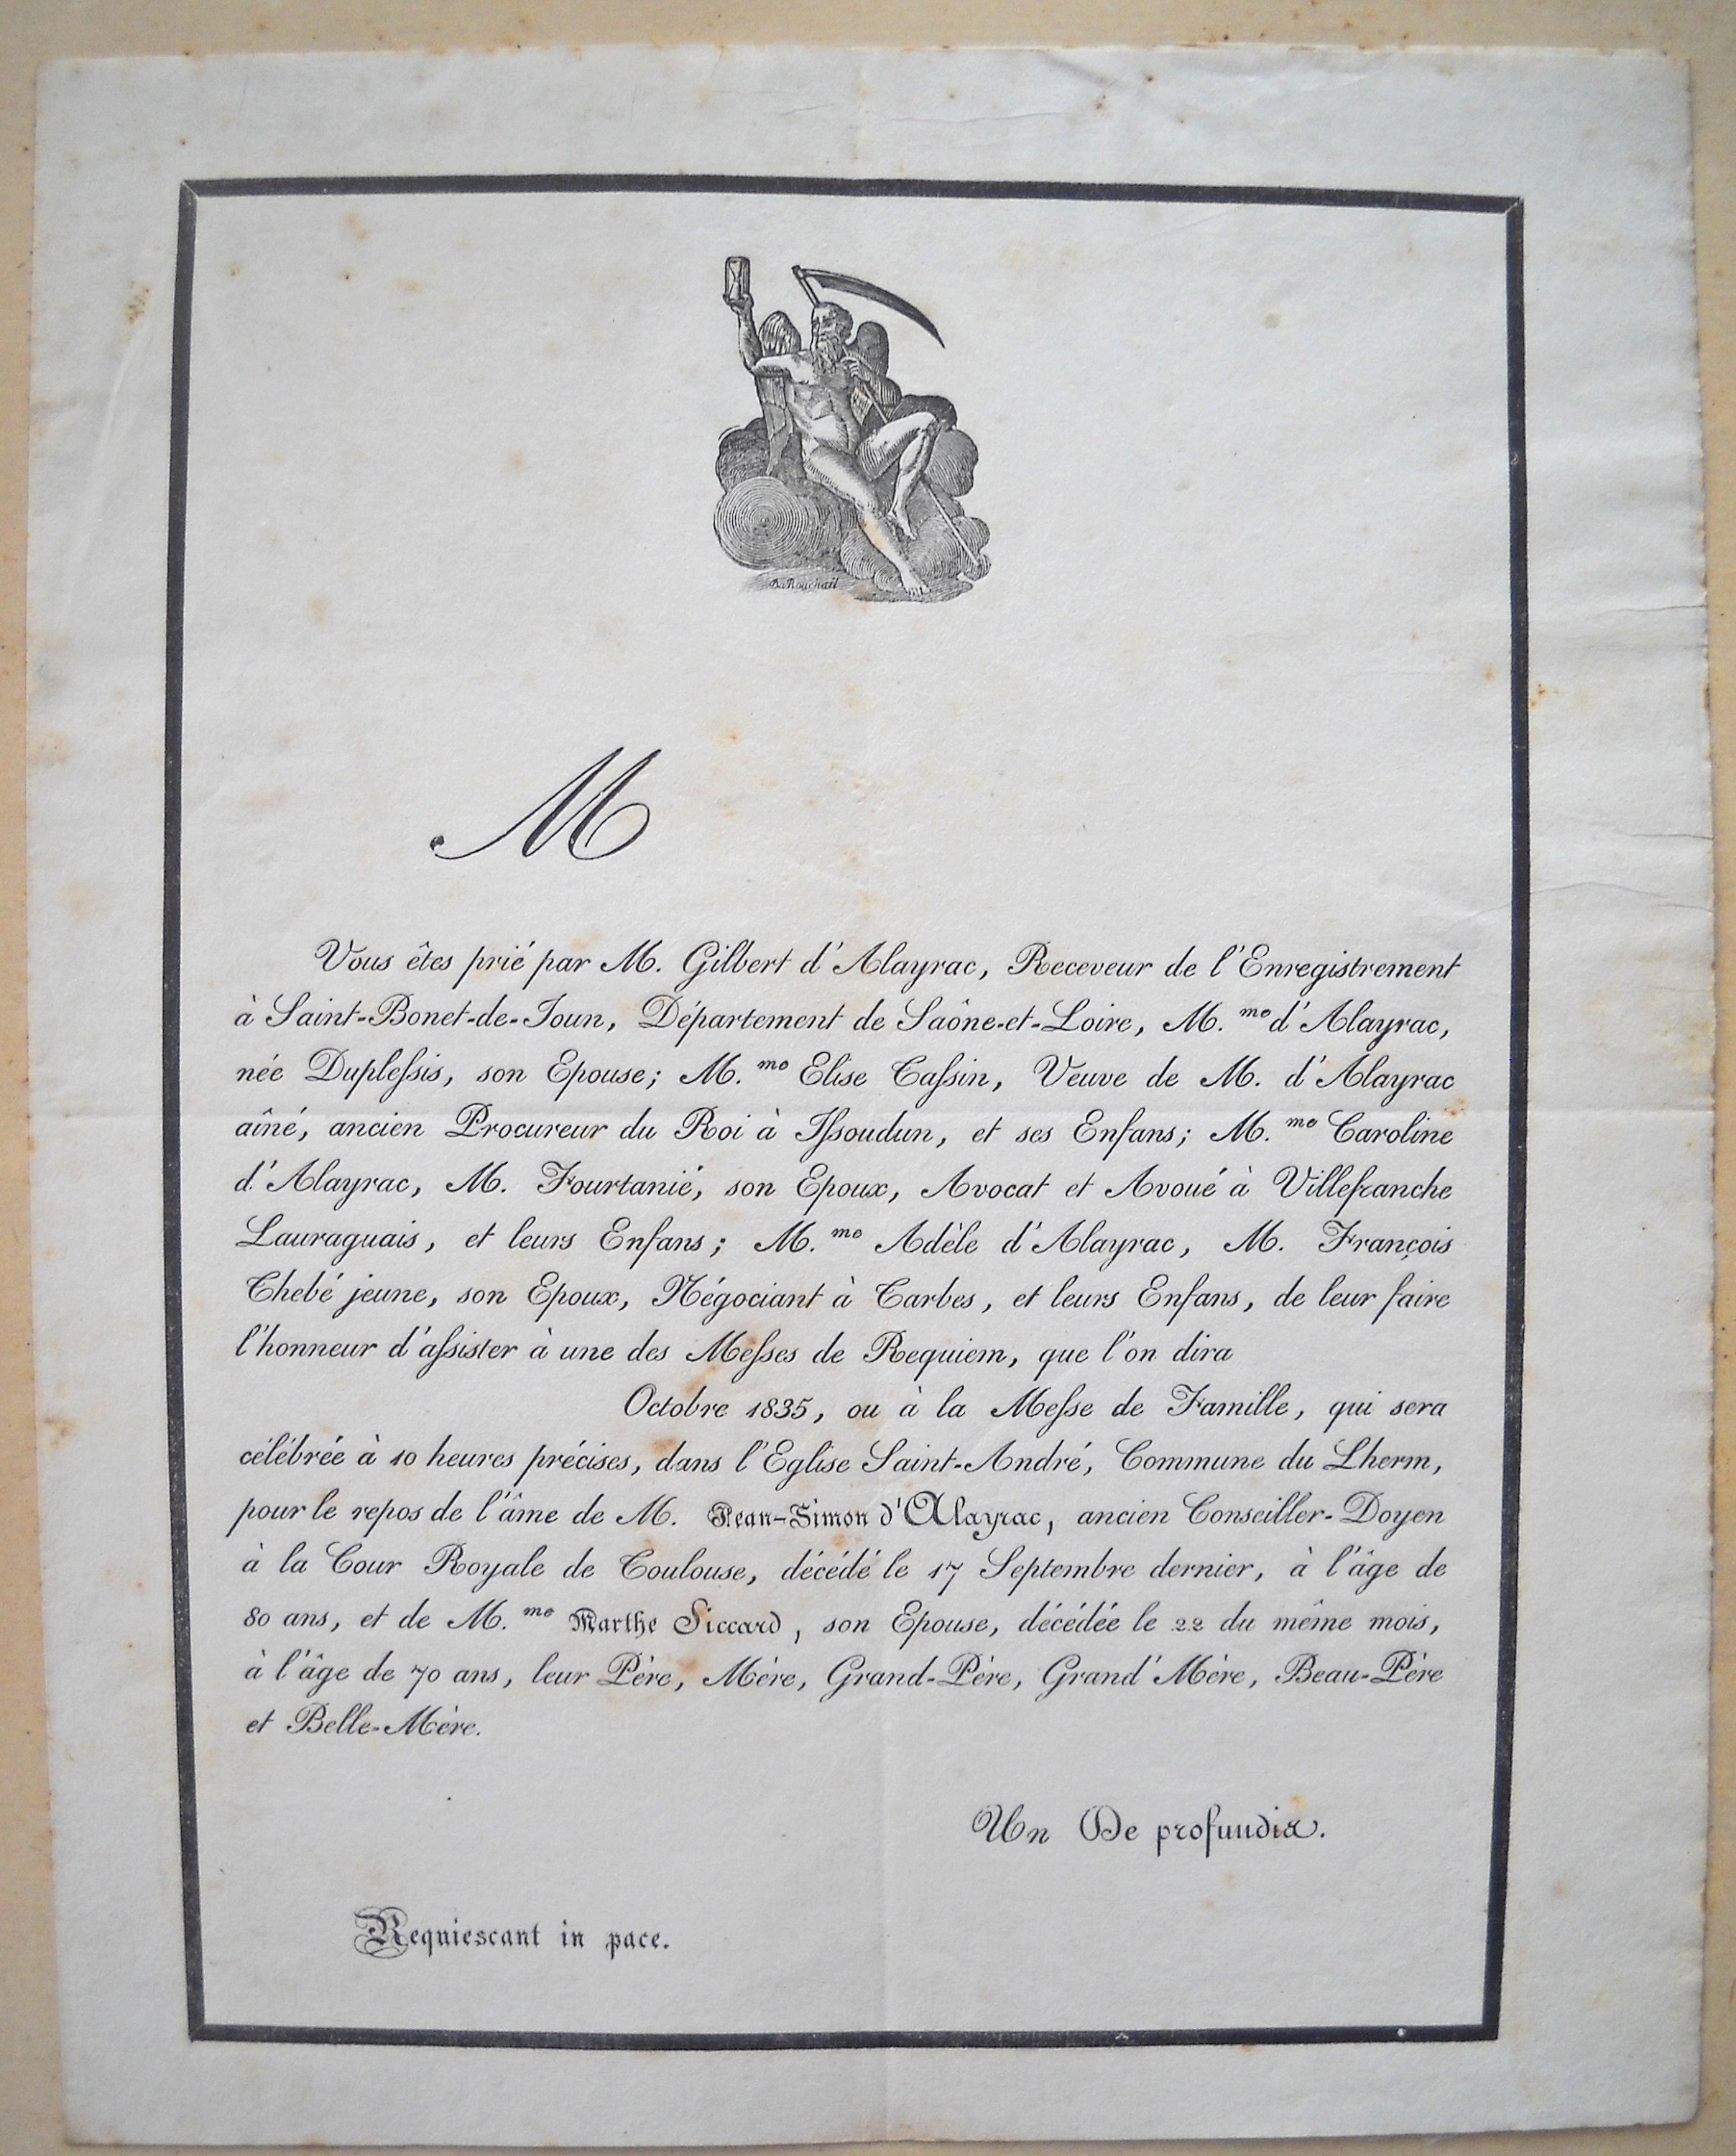 M
Vous êtes prié par M. Gilbert d'Alayrac, Receveur de l'Enregistrement
à Saint-Bonet-de-Joun, Département de Saône-et-Loire, M.me d'Alayrac,
née Dupleſsis, son Epouse; M.me Elise Caſsin, Veuve de M. d'Alayrac
aîné, ancien Procureur du Roi à Iſsoudun, et ses Enfans; M.me Caroline
d'Alayrac, M. Fourtanié, son Epoux, Avocat et Avoué à Villefranche
Lauraguais, et leurs Enfans; M.me Adèle d'Alayrac, M. François
Thebé jeune, son Epoux, Négociant à Tarbes, et leurs Enfans, de leur faire
l'honneur d'aſsister à une des Meſses de Requiem, que l'on dira
Octobre 1835, ou à la Meſse de Famille, qui sera
célébrée à 10 heures précises, dans l'Eglise Saint-André, Commune du Lherm,
pour le repos de l'âme de M. Jean-Simon d'Alayrac, ancien Conseiller-Doyen
à la Cour Royale de Toulouse, décédé le 17 Septembre dernier, à l'âge de
80 ans, et de M.me Marthe Siccard, son Epouse, décédée le 22 du même mois,
à l'âge de 70 ans, leur Père, Mère, Grand-Père, Grand'Mère, Beau-Père
et Belle-Mère.
Un De profundis.
Requiescant in pace.